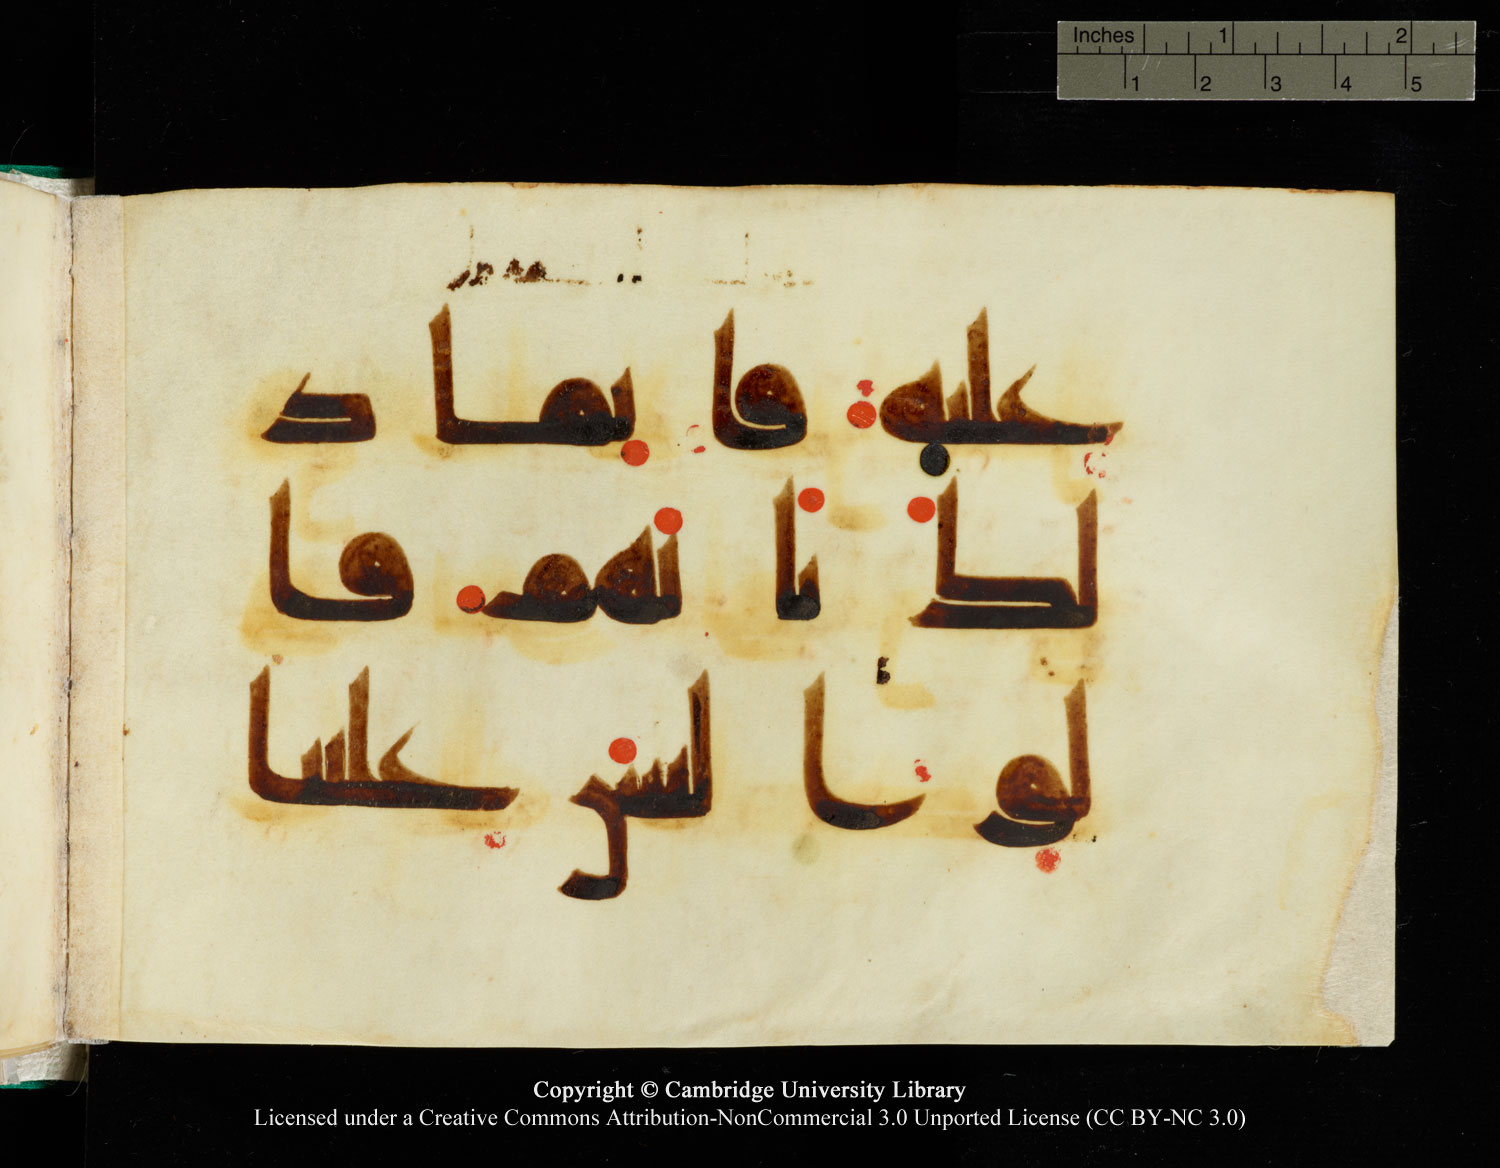 Inches 1 2
1 2 3 4 5
عليه قايما ذ
لك بانهم قا
لوا ليس علينا
Copyright © Cambridge University Library
Licensed under a Creative Commons Attribution-NonCommercial 3.0 Unported License (CC BY-NC 3.0)